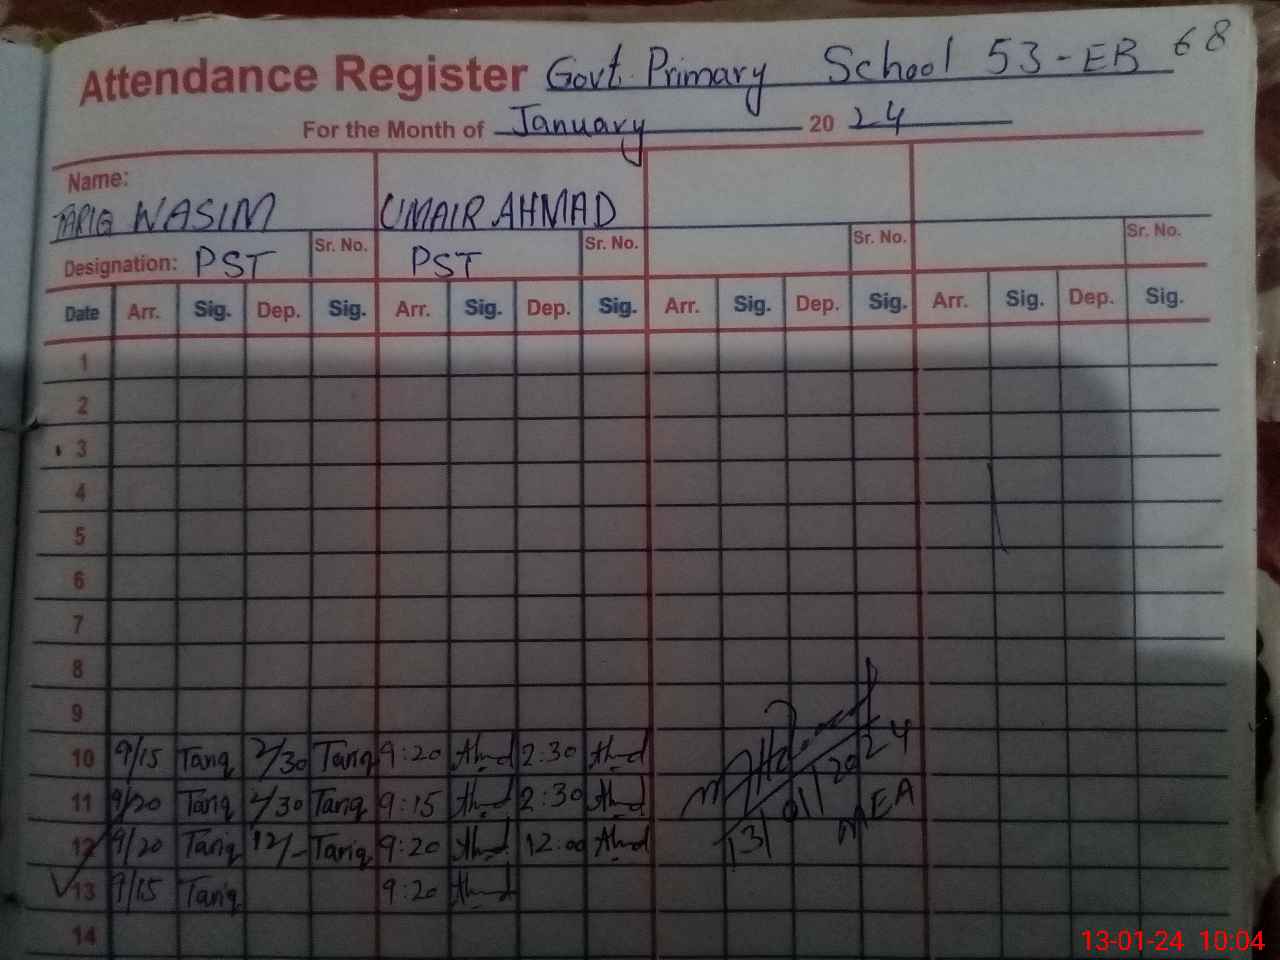 68
Attendance Register Govt. Primary School 53-EB
For the Month of January 2024
Name:
TARIQ WASIM UMAIR AHMAD
Designation: PST Sr. No. PST Sr. No. Sr. No. Sr. No.
Date Arr. Sig. Dep. Sig. Arr. Sig. Dep. Sig. Arr. Sig. Dep. Sig. Arr. Sig. Dep. Sig.
1
2
3
4
5
6
7
8
9
10 9/15 Tariq 2/30 Tariq 9:20 Ahmd 2:30 Ahmd
11 9/20 Tariq 2/30 Tariq 9:15 Ahmd 2:30 Ahmd
12 9/20 Tariq 12/- Tariq 9:20 Ahmd 12:00 Ahmd
13 9/15 Tariq 9:20 Ahmd
14
13/01/2024
MEA
13-01-24 10:04